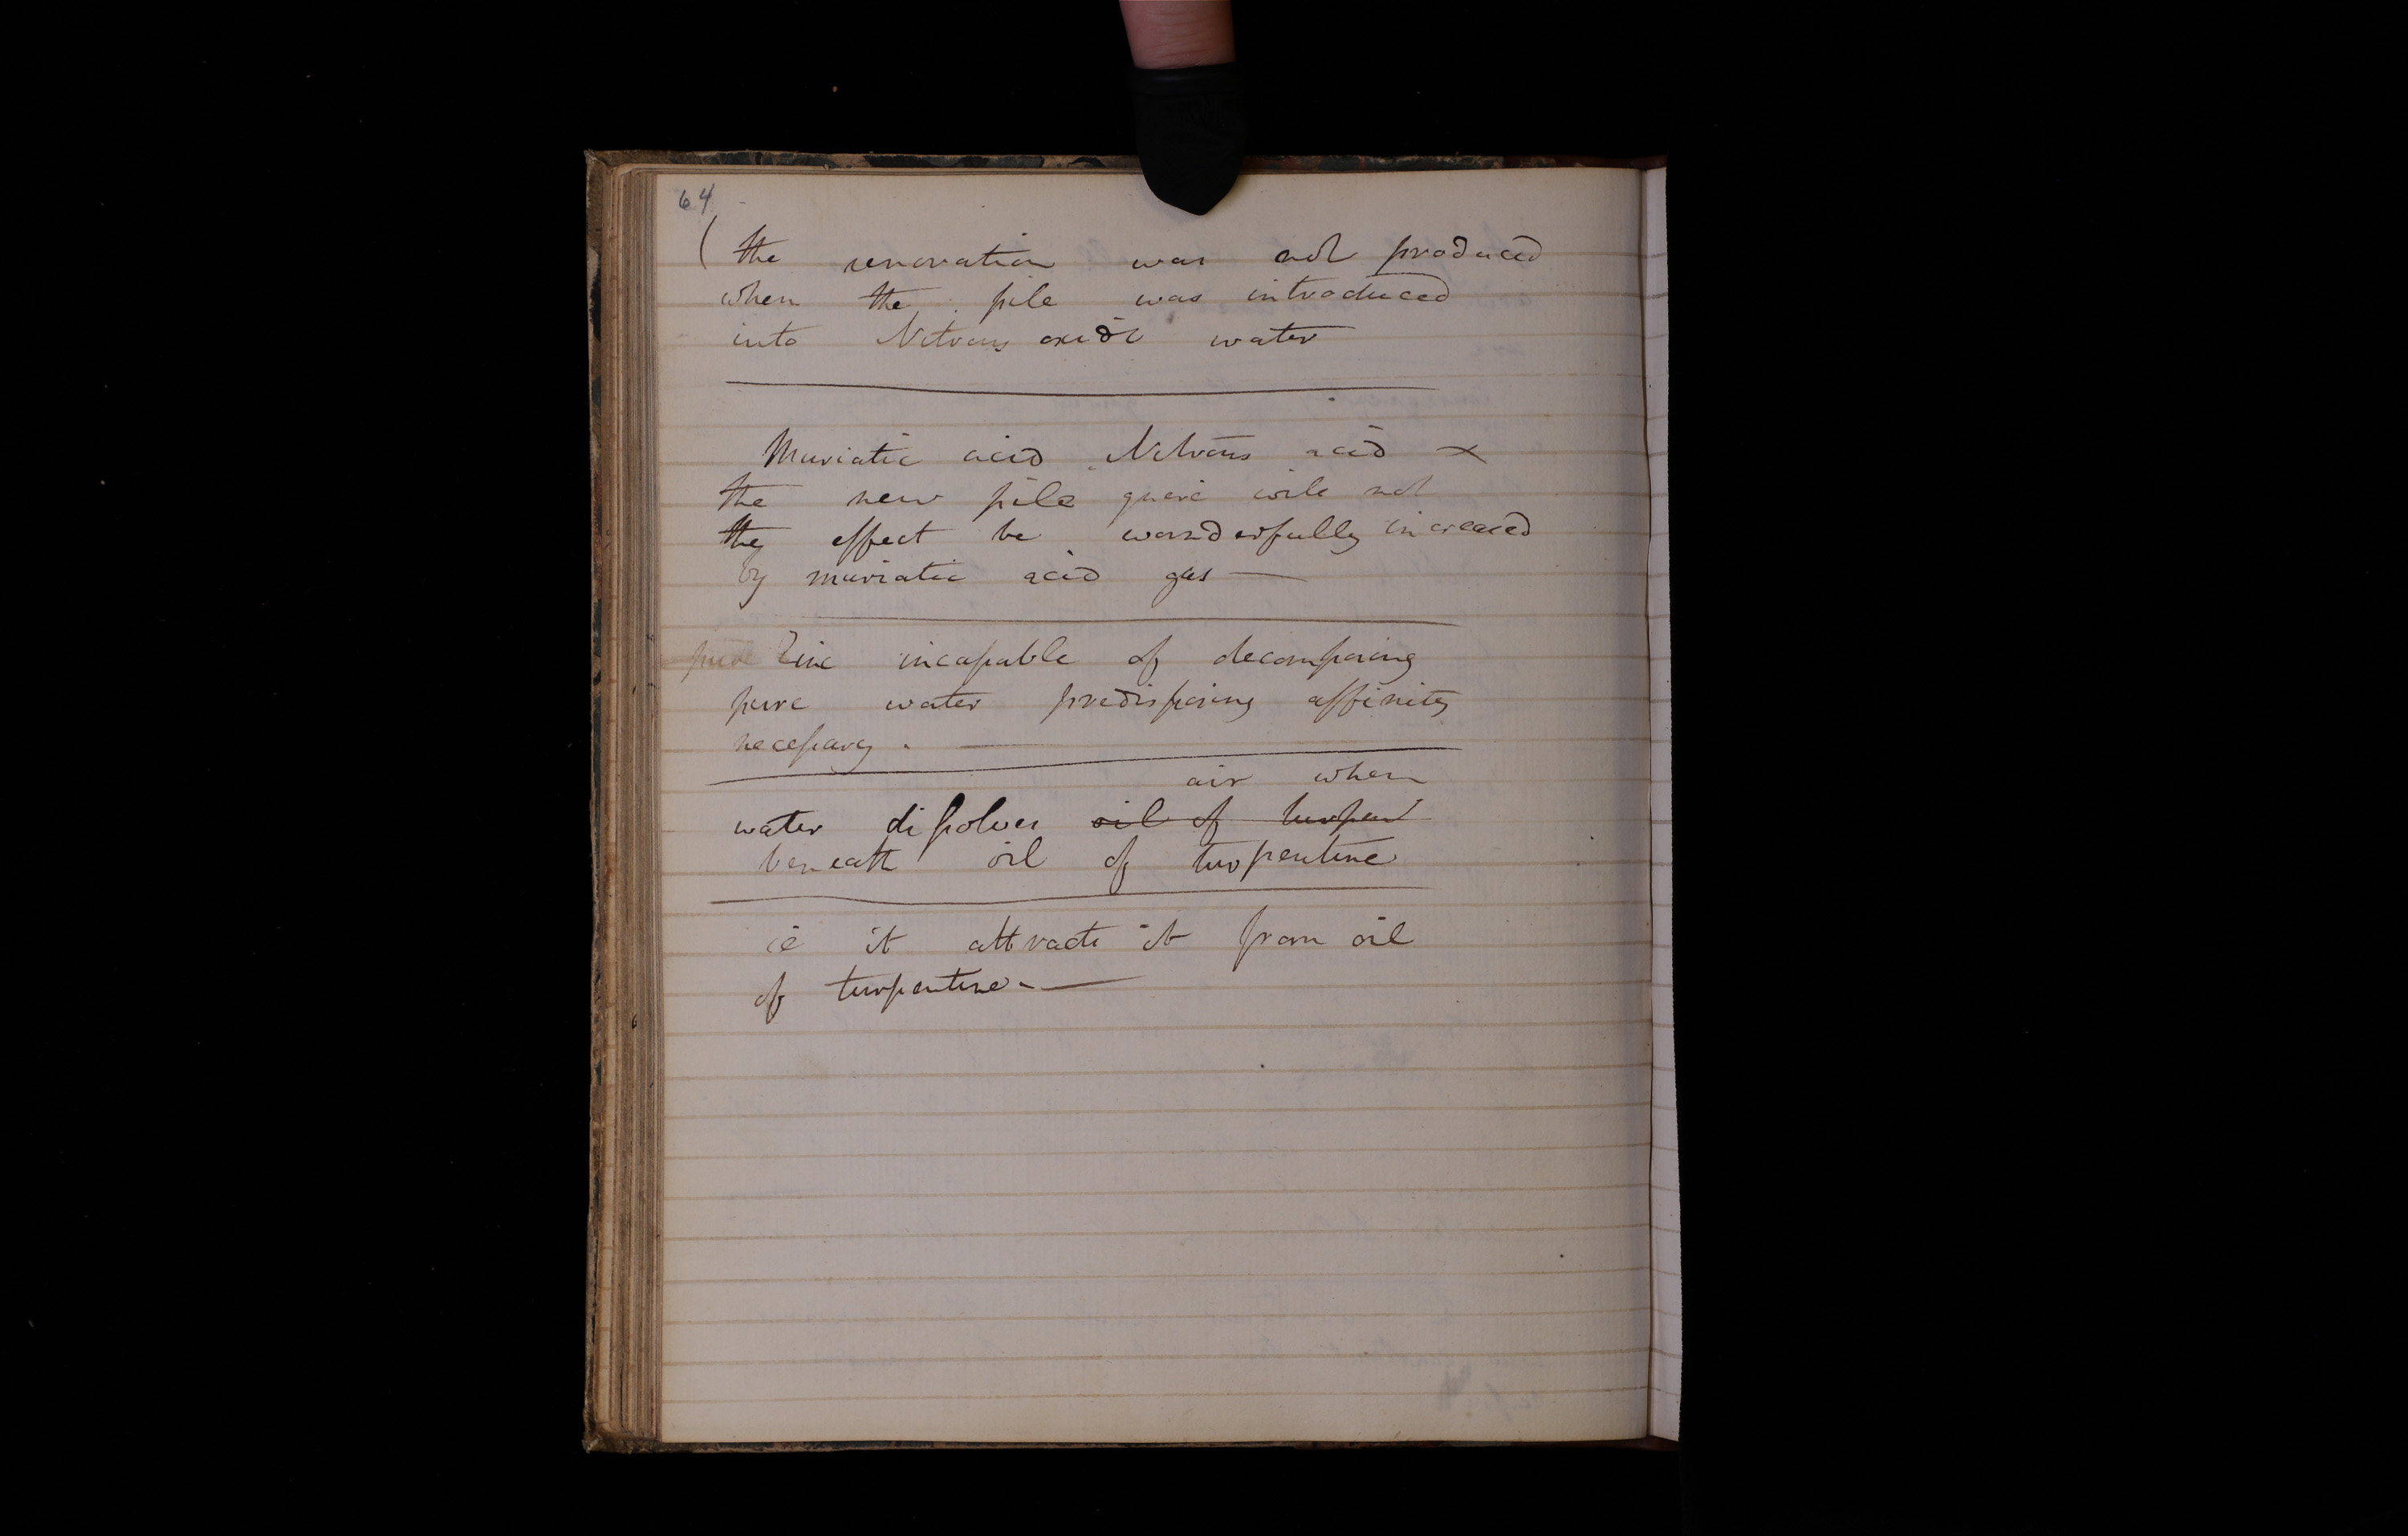 64
(the renovation was not produced
when the pile was introduced
into Nitrous oxide water
Muriatic acid Nitrous acid ×
the new pile quere will not
the effect be wonderfully increased
by muriatic acid gas —
pure Zinc incapable of decomposing
pure water predisposing affinity
necessary. —
air when
water dissolves oil of turpen
beneath oil of turpentine
ie it attracts it from oil
of turpentine. —